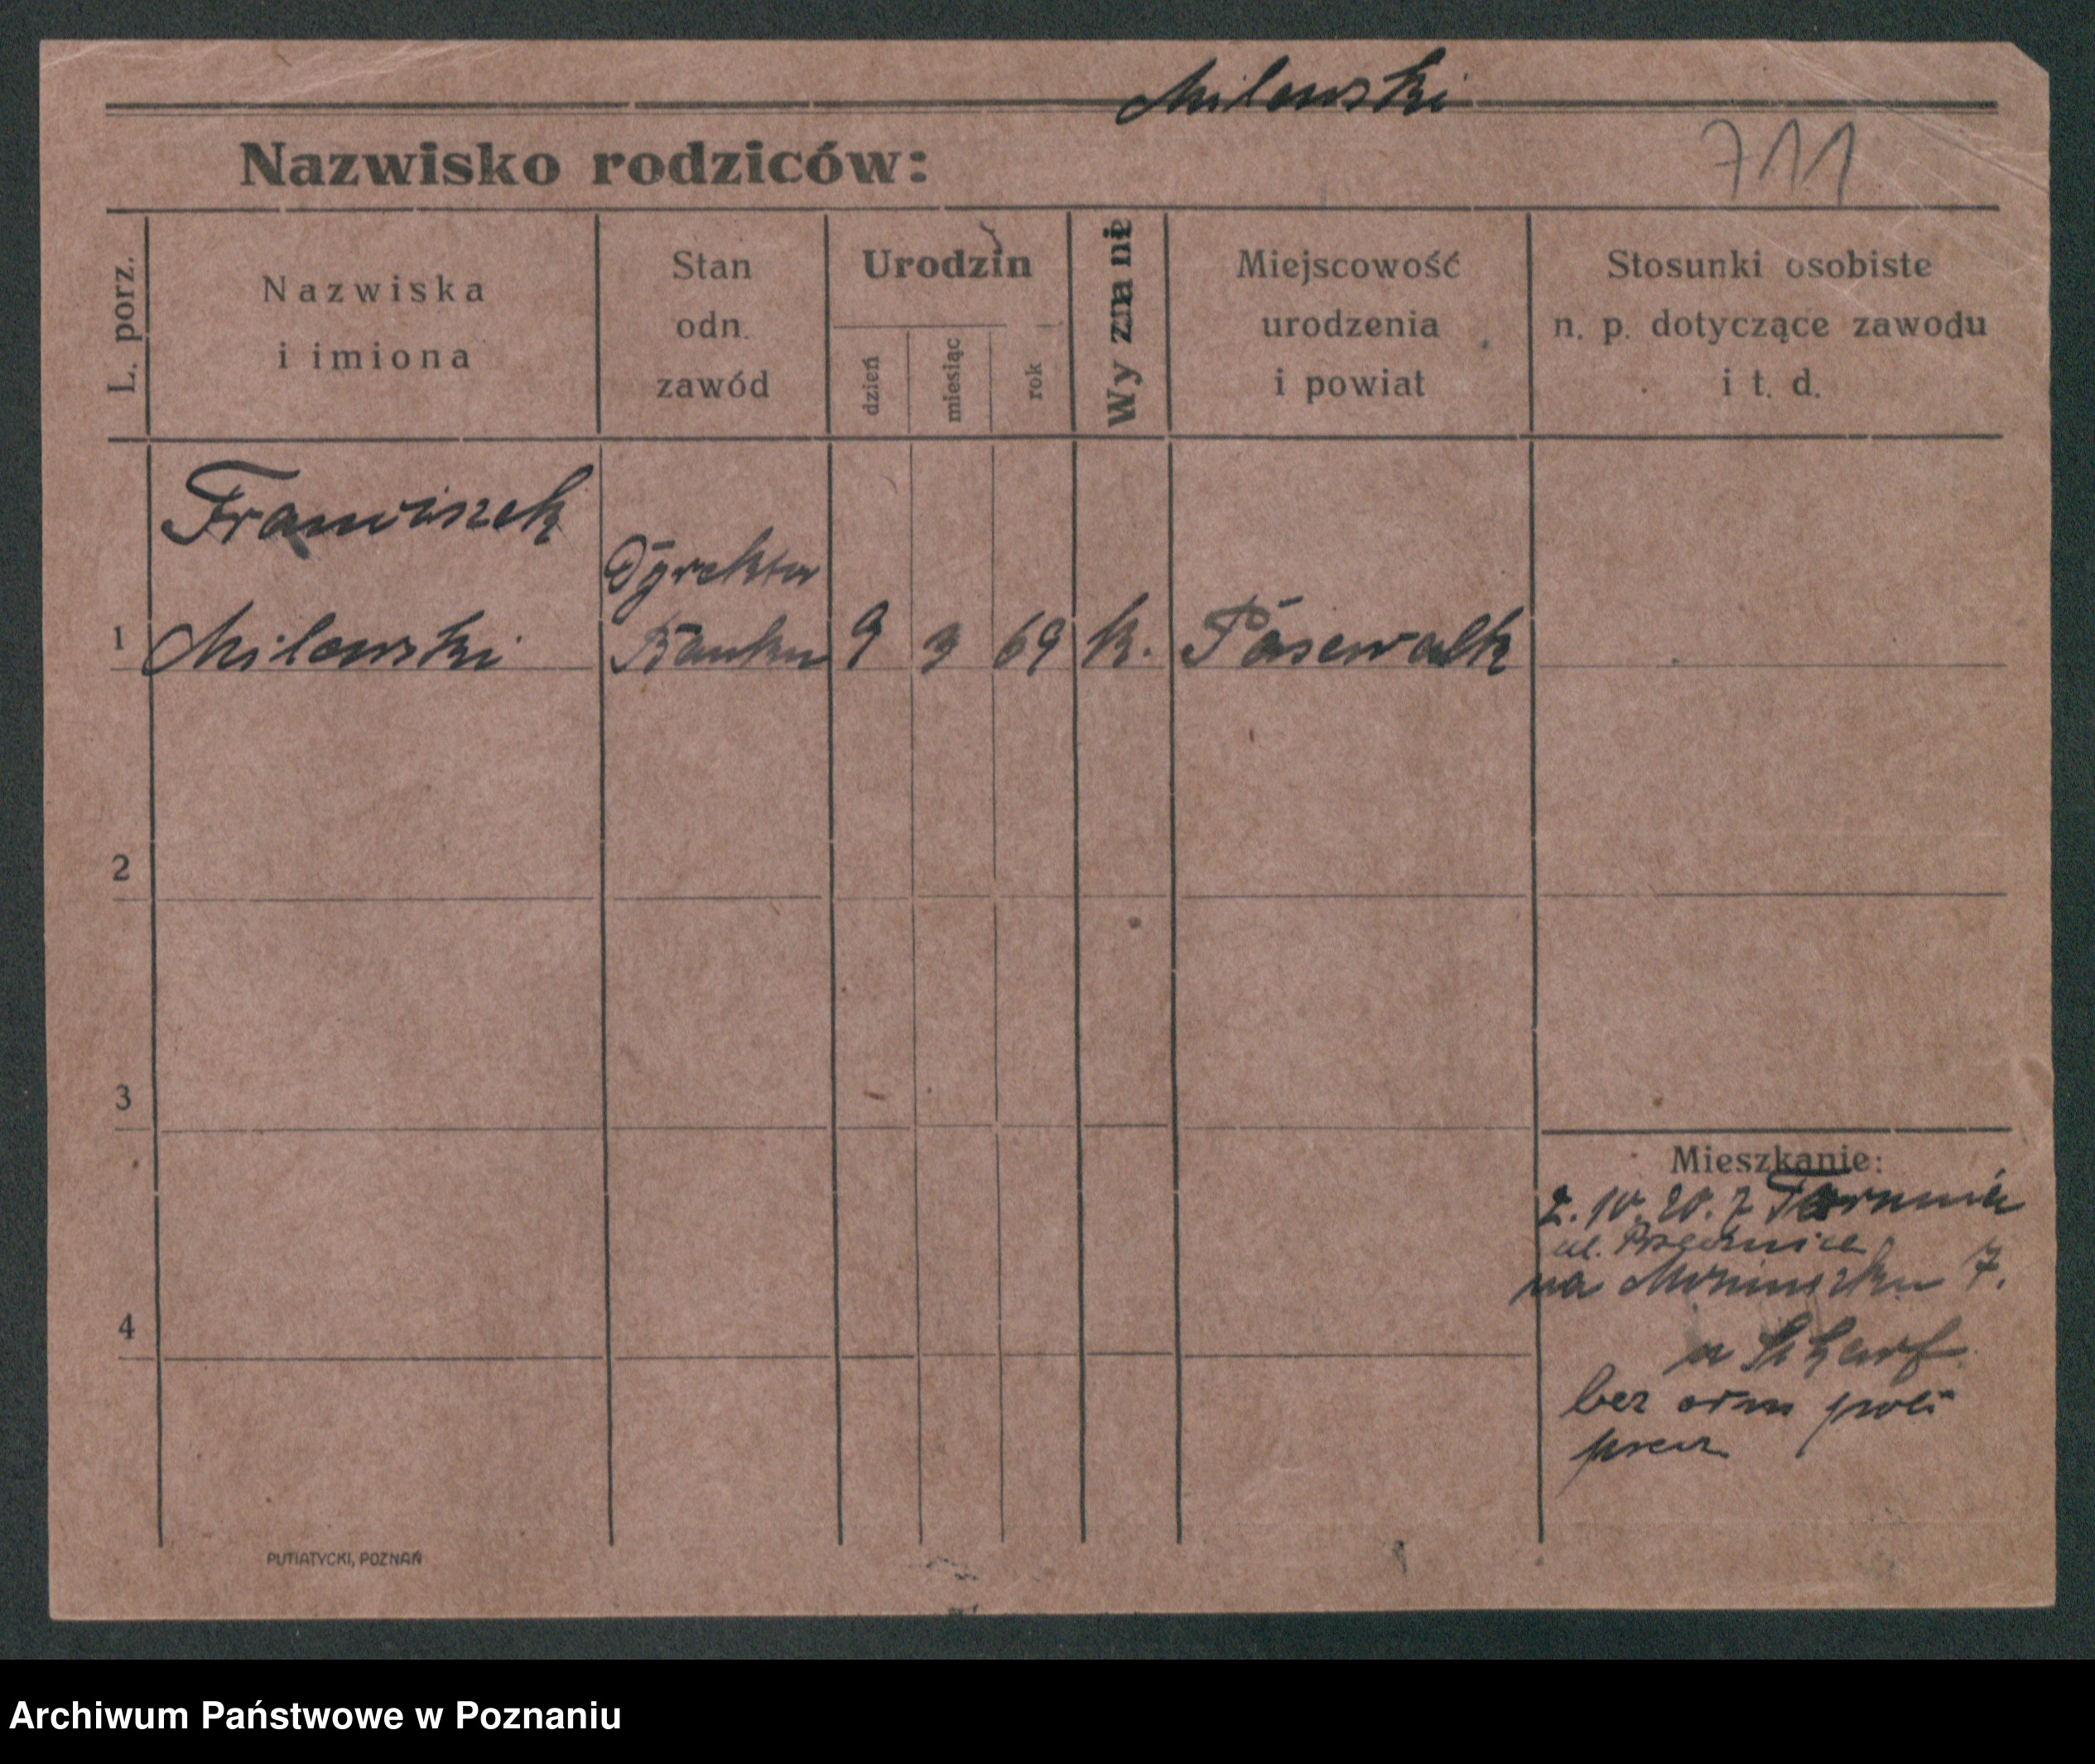 Milewski
711
Nazwisko rodziców:
L. porz.
Nazwiska
i imiona
Stan
odn.
zawód
Urodzin
dzień
miesiąc
rok
Wyznanie
Miejscowość
urodzenia
i powiat
Stosunki osobiste
n. p. dotyczące zawodu
i t. d.
Franciszek
Dyrektor
1 Milewski Banku 9 3 69 k. Pasewalk
2
3
4
Mieszkanie:
2. 10. 20. z Torunia
ul.
na 7.
u
bez
PUTIATYCKI, POZNAŃ
Archiwum Państwowe w Poznaniu